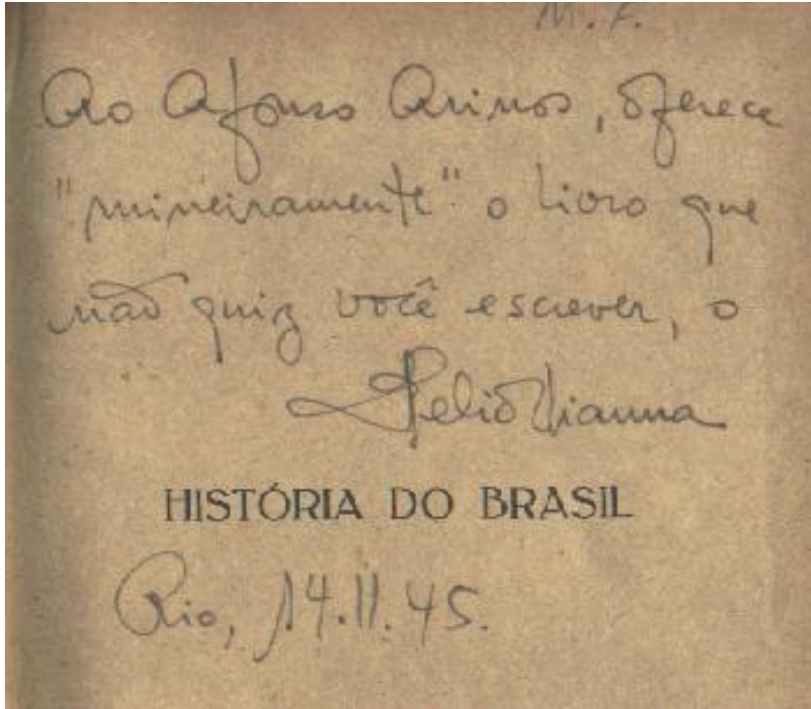 M. F.
Ao Afonso Arinos, oferece
"mineiramente" o livro que
não quiz você escrever, o
Helio Vianna
HISTÓRIA DO BRASIL
Rio, 14.11.45.